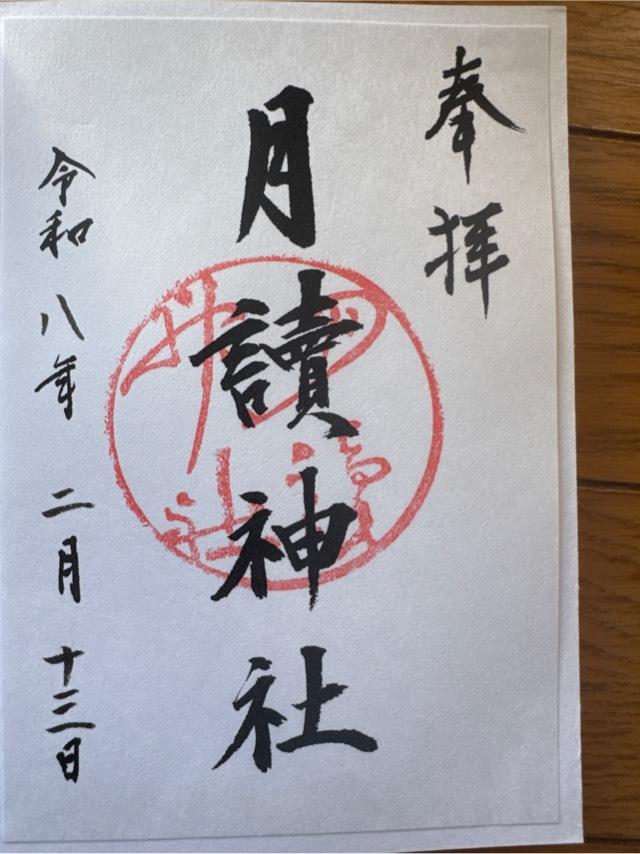 奉拝
月讀神社
令和八年二月十三日